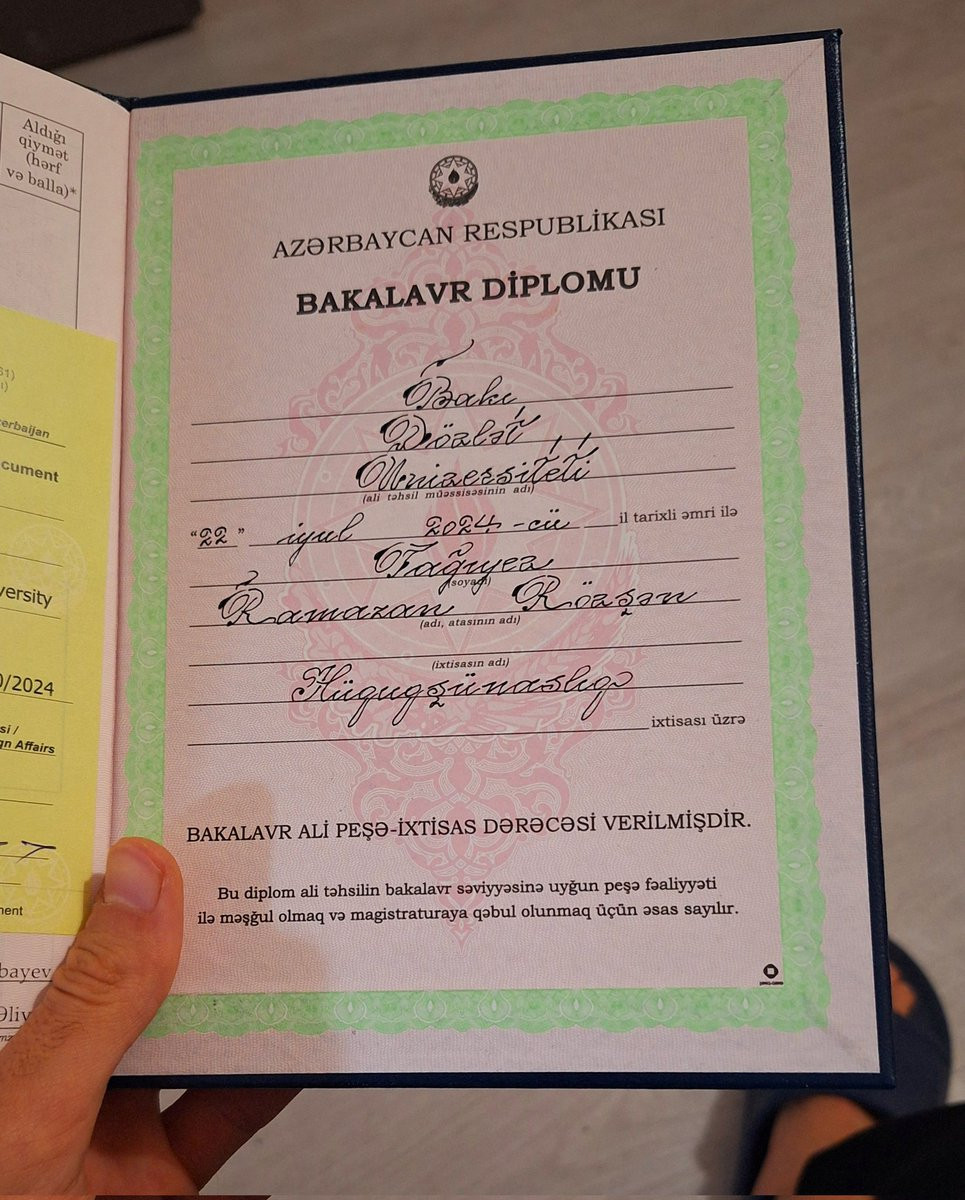 Aldığı
qiymət
(hərf
və balla)*
AZƏRBAYCAN RESPUBLİKASI
BAKALAVR DİPLOMU
Bakı
Dövlət
Universiteti
(ali təhsil müəssisəsinin adı)
"22" iyul 2024-cü il tarixli əmri ilə
Tağıyev
(soyadı)
Ramazan Rövşən
(adı, atasının adı)
(ixtisasın adı)
Hüquqşünaslıq
ixtisası üzrə
BAKALAVR ALİ PEŞƏ-İXTİSAS DƏRƏCƏSİ VERİLMİŞDİR.
Bu diplom ali təhsilin bakalavr səviyyəsinə uyğun peşə fəaliyyəti
ilə məşğul olmaq və magistraturaya qəbul olunmaq üçün əsas sayılır.
erbaijan
cument
versity
0/2024
si /
gn Affairs
ment
bayev
Əliy